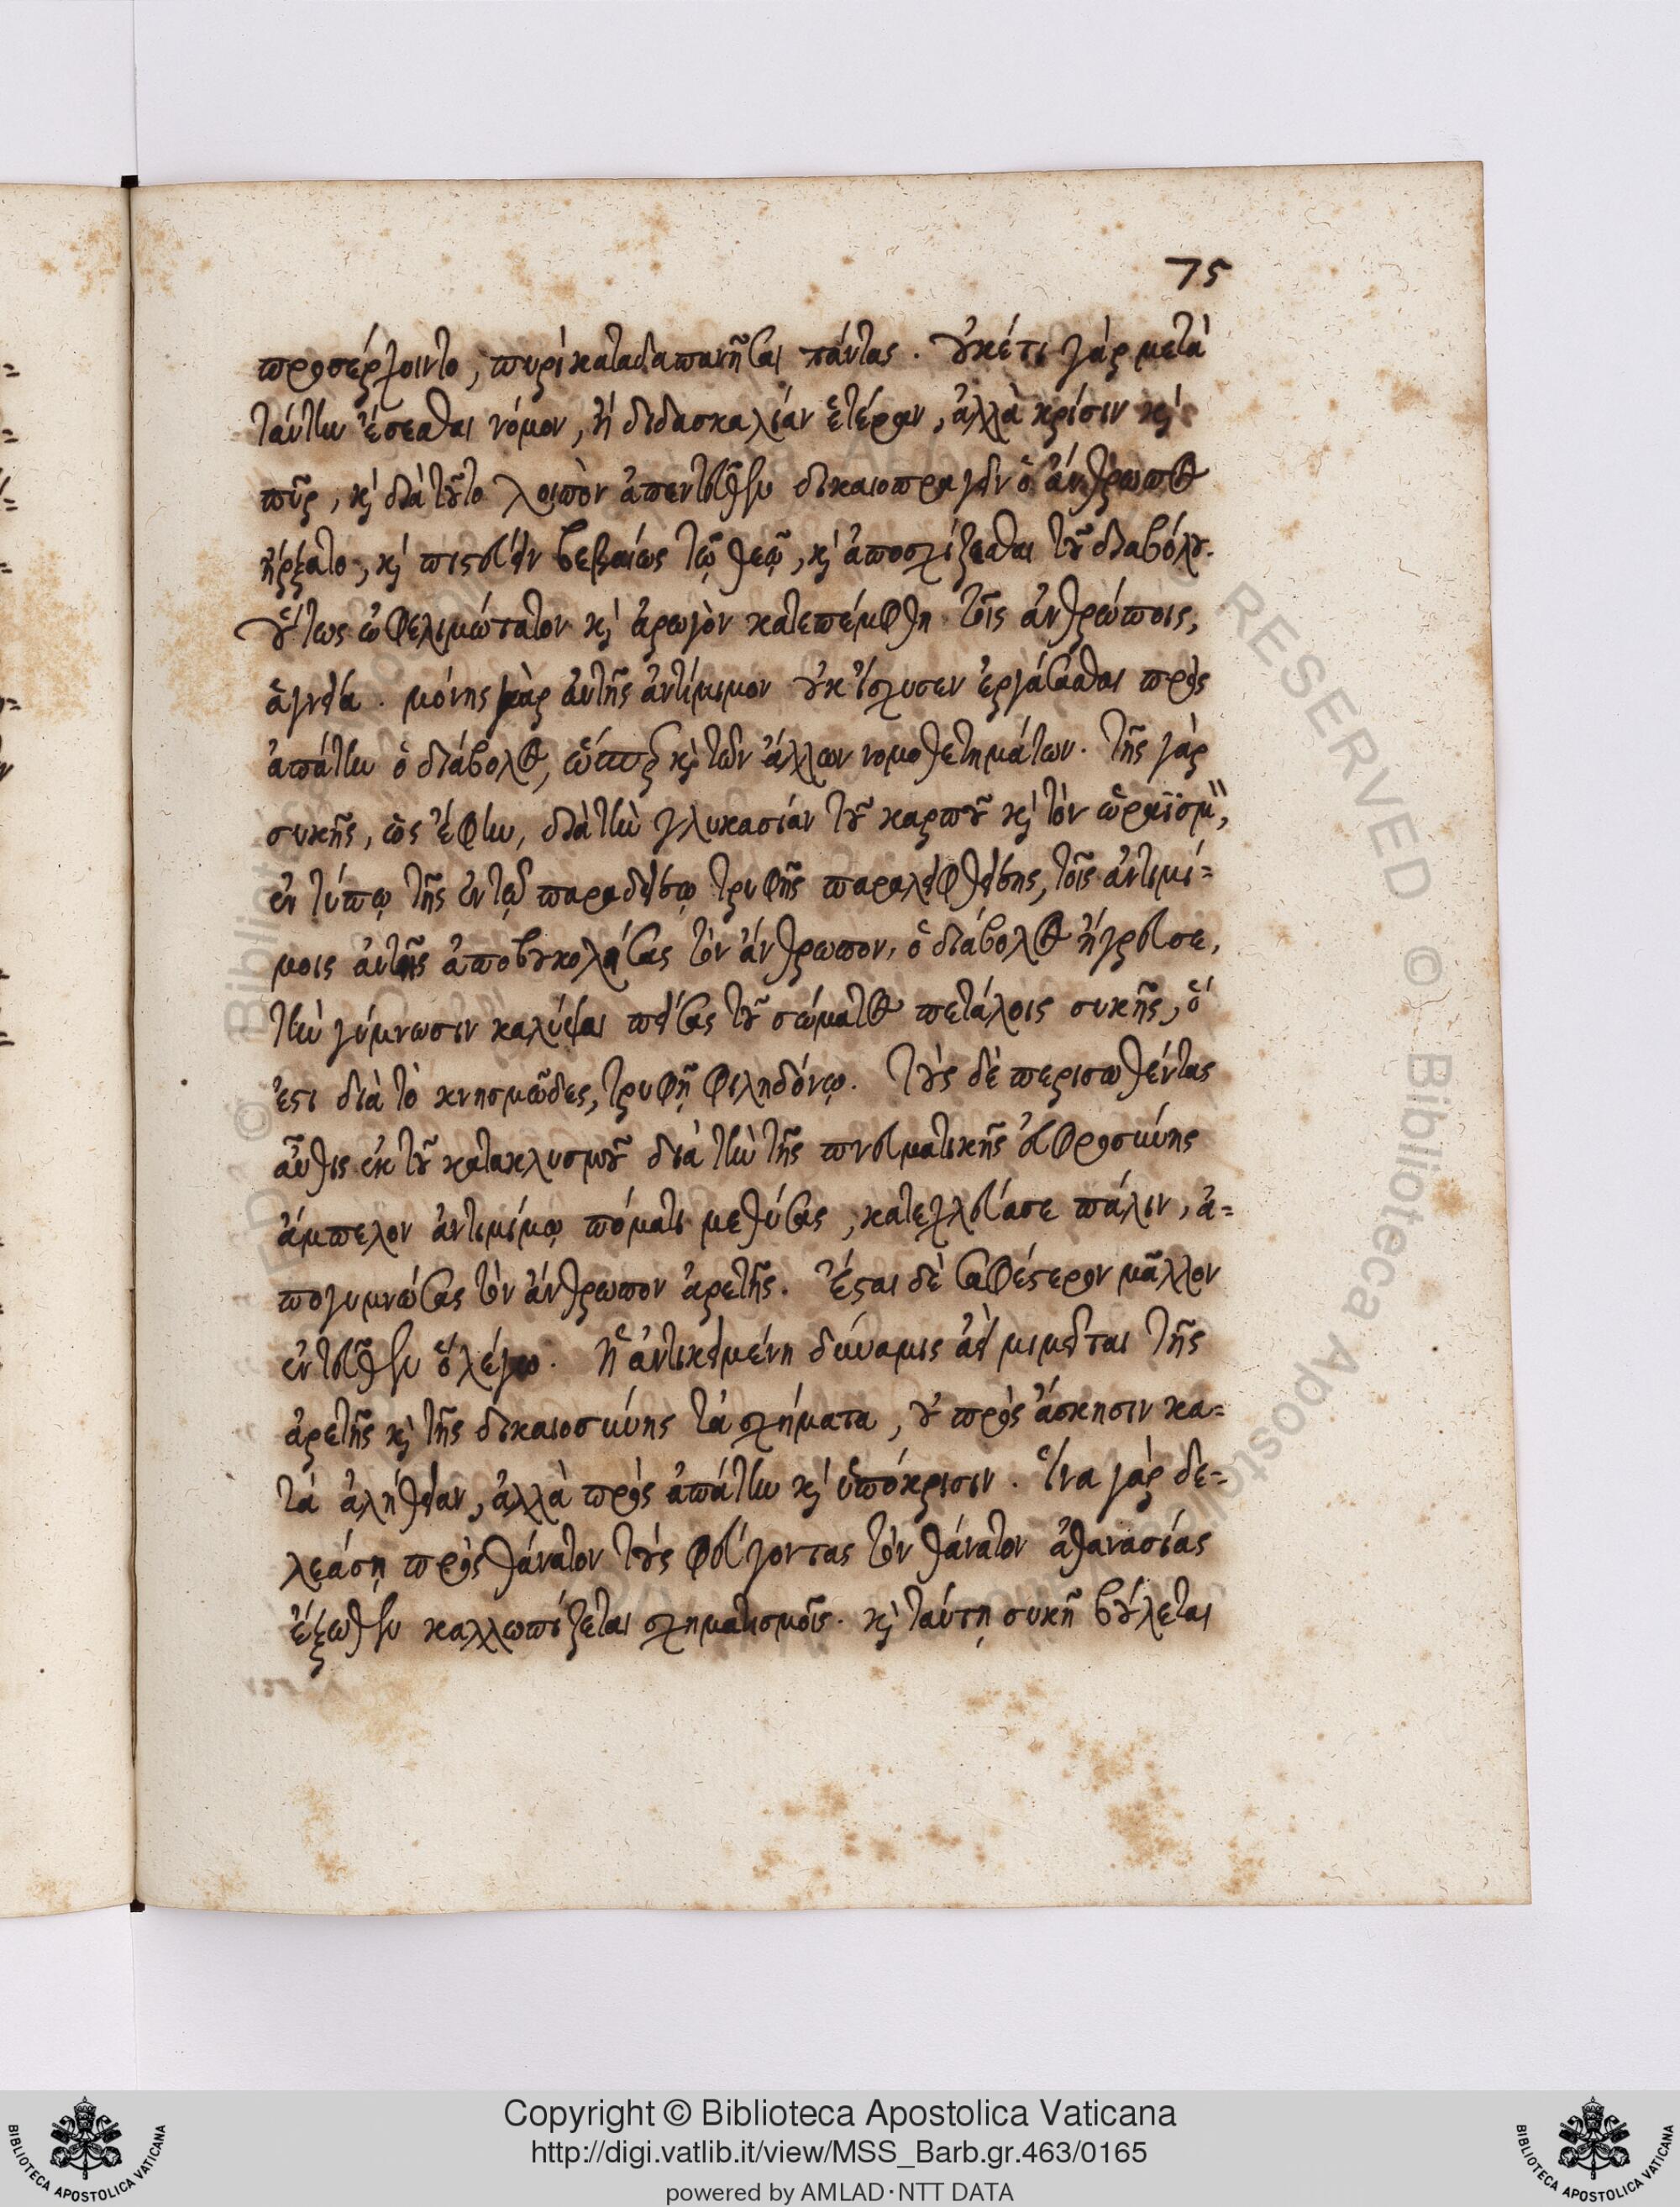 75
προσέρχοιντο, πυρὶ καταδαπανῆσαι πάντας. οὐκέτι γάρ μετὰ
ταύτην ἔσεσθαι νόμον, ἢ διδασκαλίαν ἑτέραν, ἀλλὰ κρίσιν καὶ
πῦρ, καὶ διὰ τοῦτο λοιπὸν ἀπεντεῦθεν δικαιοπραγεῖν ὁ ἄνθρωπος
ἤρξατο, καὶ πιστεύειν βεβαίως τῷ θεῷ, καὶ ἀποσχίζεσθαι τοῦ διαβόλου.
οὕτως ὠφελιμώτατον καὶ ἀρωγὸν κατεπέμφθη τοῖς ἀνθρώποις,
ἁγνεία. μόνης γὰρ αὐτῆς ἀντίμιμον οὐκ ἴσχυσεν ἐργάσασθαι πρὸς
ἀπάτην ὁ διάβολος, ὥσπερ καὶ τῶν ἄλλων νομοθετημάτων. τῆς γάρ
συκῆς, ὡς ἔφην, διὰ τὴν γλυκασίαν τοῦ καρποῦ καὶ τὸν ὡραϊσμὸν,
ἐν τύπῳ τῆς ἐν τῷ παραδείσῳ τρυφῆς παραλειφθείσης, τοῖς ἀντιμί=
μοις αὐτῆς ἀποβουκολήσας τὸν ἄνθρωπον, ὁ διάβολος ἤγρευσε,
τὴν γύμνωσιν καλύψαι πείσας τοῦ σώματος πετάλοις συκῆς, ὅ
ἐστι διὰ τὸ κνησμῶδες, τρυφῇ φιληδόνῳ. Τοὺς δὲ περισωθέντας
αὖθις ἐκ τοῦ κατακλυσμοῦ διὰ τὴν τῆς πνευματικῆς εὐφροσύνης
ἄμπελον ἀντιμίμῳ πόματι μεθύσας, κατεχλεύασε πάλιν, ἀ=
πογυμνώσας τὸν ἄνθρωπον ἀρετῆς. Ἔσται δὲ σαφέστερον μᾶλλον
ἐντεῦθεν ὃ λέγω. Ἡ ἀντικειμένη δύναμις ἀεὶ μιμεῖται τῆς
ἀρετῆς καὶ τῆς δικαιοσύνης τὰ σχήματα, οὐ πρὸς ἄσκησιν κα=
τὰ ἀλήθειαν, ἀλλὰ πρὸς ἀπάτην καὶ ὑπόκρισιν. ἵνα γάρ δε=
λεάσῃ πρὸς θάνατον τοὺς φεύγοντας τὸν θάνατον ἀθανασίας
ἔξωθεν καλλωπίζεται σχηματισμοῖς. καὶ ταύτῃ συκῆ βούλεται
Copyright © Biblioteca Apostolica Vaticana
http://digi.vatlib.it/view/MSS_Barb.gr.463/0165
powered by AMLAD·NTT DATA
BIBLIOTECA APOSTOLICA VATICANA
BIBLIOTECA APOSTOLICA VATICANA